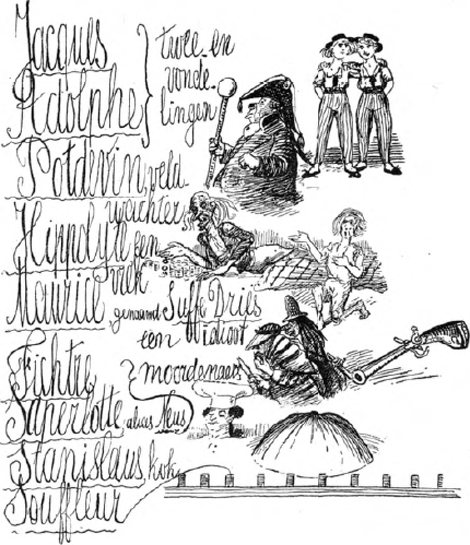 Jacques } twee- en
Adolphe } vonde-
lingen
Potdevin, veld
wachter
Hippolyte een
vrek
Maurice, genaamd Suffe Dries
een idioot
Fichtre } moordenaars
Saperlotte, alias Neus
Stanislaus, kok
Souffleur